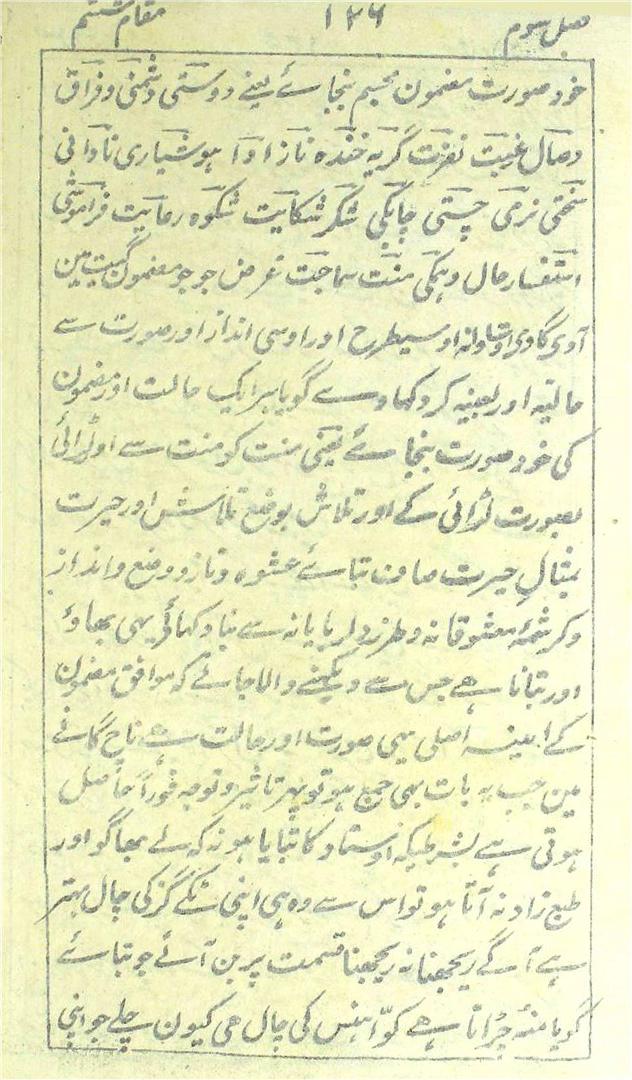 فصل سوم ۱۲۶ مقام ششم
خود صورت مضمون مجسم بنجاۓ یعنے دوستی دشمنی و فراق
وصال رغبت نفرت گریہ خندہ ناز ادا ہوشیاری نادانی
سختی نرمی چستی چابکی شکر شکایت شکوہ رعایت فراموشی
استفسار حال دہمکی منت سماجت غرض جو جو مضمون گیت مین
آوی گاوی اوسیطرح اور اوسی انداز اور صورت سے
حالتیہ اور بعینہ کر دکھاوے گویا ہر ایک حالت اور مضمون
کی خود صورت بنجاۓ یعنی منت کو منت سے اور لڑائی
بصورت لڑائی کے اور تلاش بوضع تلاش اور حیرت
بمثالِ حیرت صاف بتاۓ عشوہ و ناز و وضع و انداز
و کرشمۂ معشوقانہ و طرز دلربایانہ سے بتا دکھائے یہی بھاؤ
اور بتانا ہے جس سے دیکھنے والا جانے کہ موافق مضمون
کے بعینہ اصلی یہی صورت اور حالت ہے ناچ گانے
مین جب یہ بات بھی جمع ہو تو پھر تاثیر و توجہ فوراً حاصل
ہوتی ہے بشرطیکہ اوستاد کا بتایا ہو نہ کہ بے بھاگو اور
طبع زاد نہ آتا ہو تو اس سے وہ ہی اپنی گز کی چال بہتر
ہے آگے ریجھنا نہ ریجھنا قسمت پر بن آئے جو بتاۓ
گویا منہ چڑاتا ہے کوّا ہنس کی چال ھی کیون چلے جو اپنی